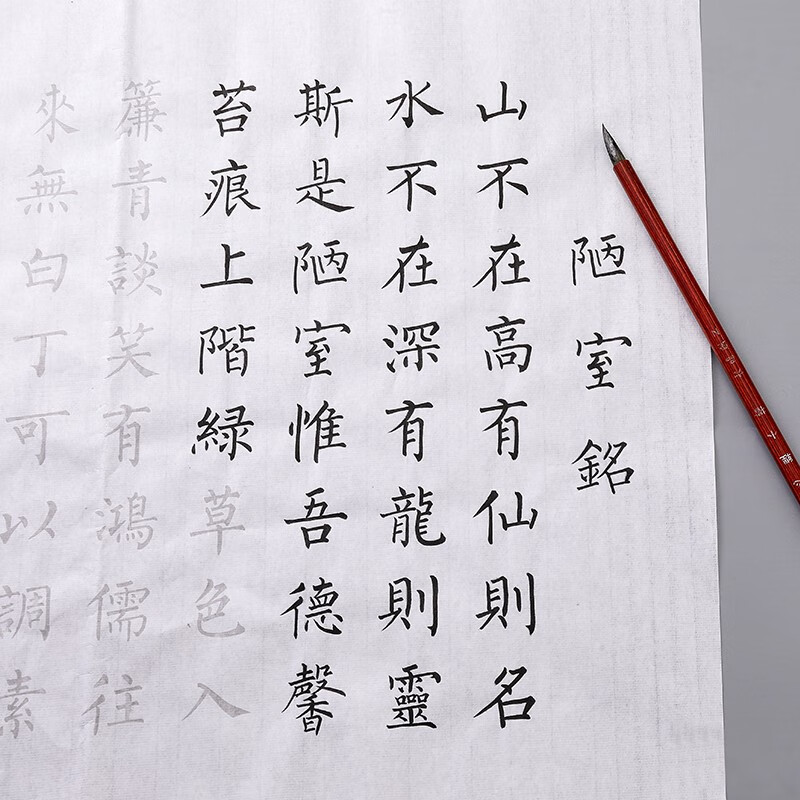 陋室銘
山不在高有仙則名
水不在深有龍則靈
斯是陋室惟吾德馨
苔痕上階緑草色入
簾青談笑有鴻儒往
來無白丁可以調素